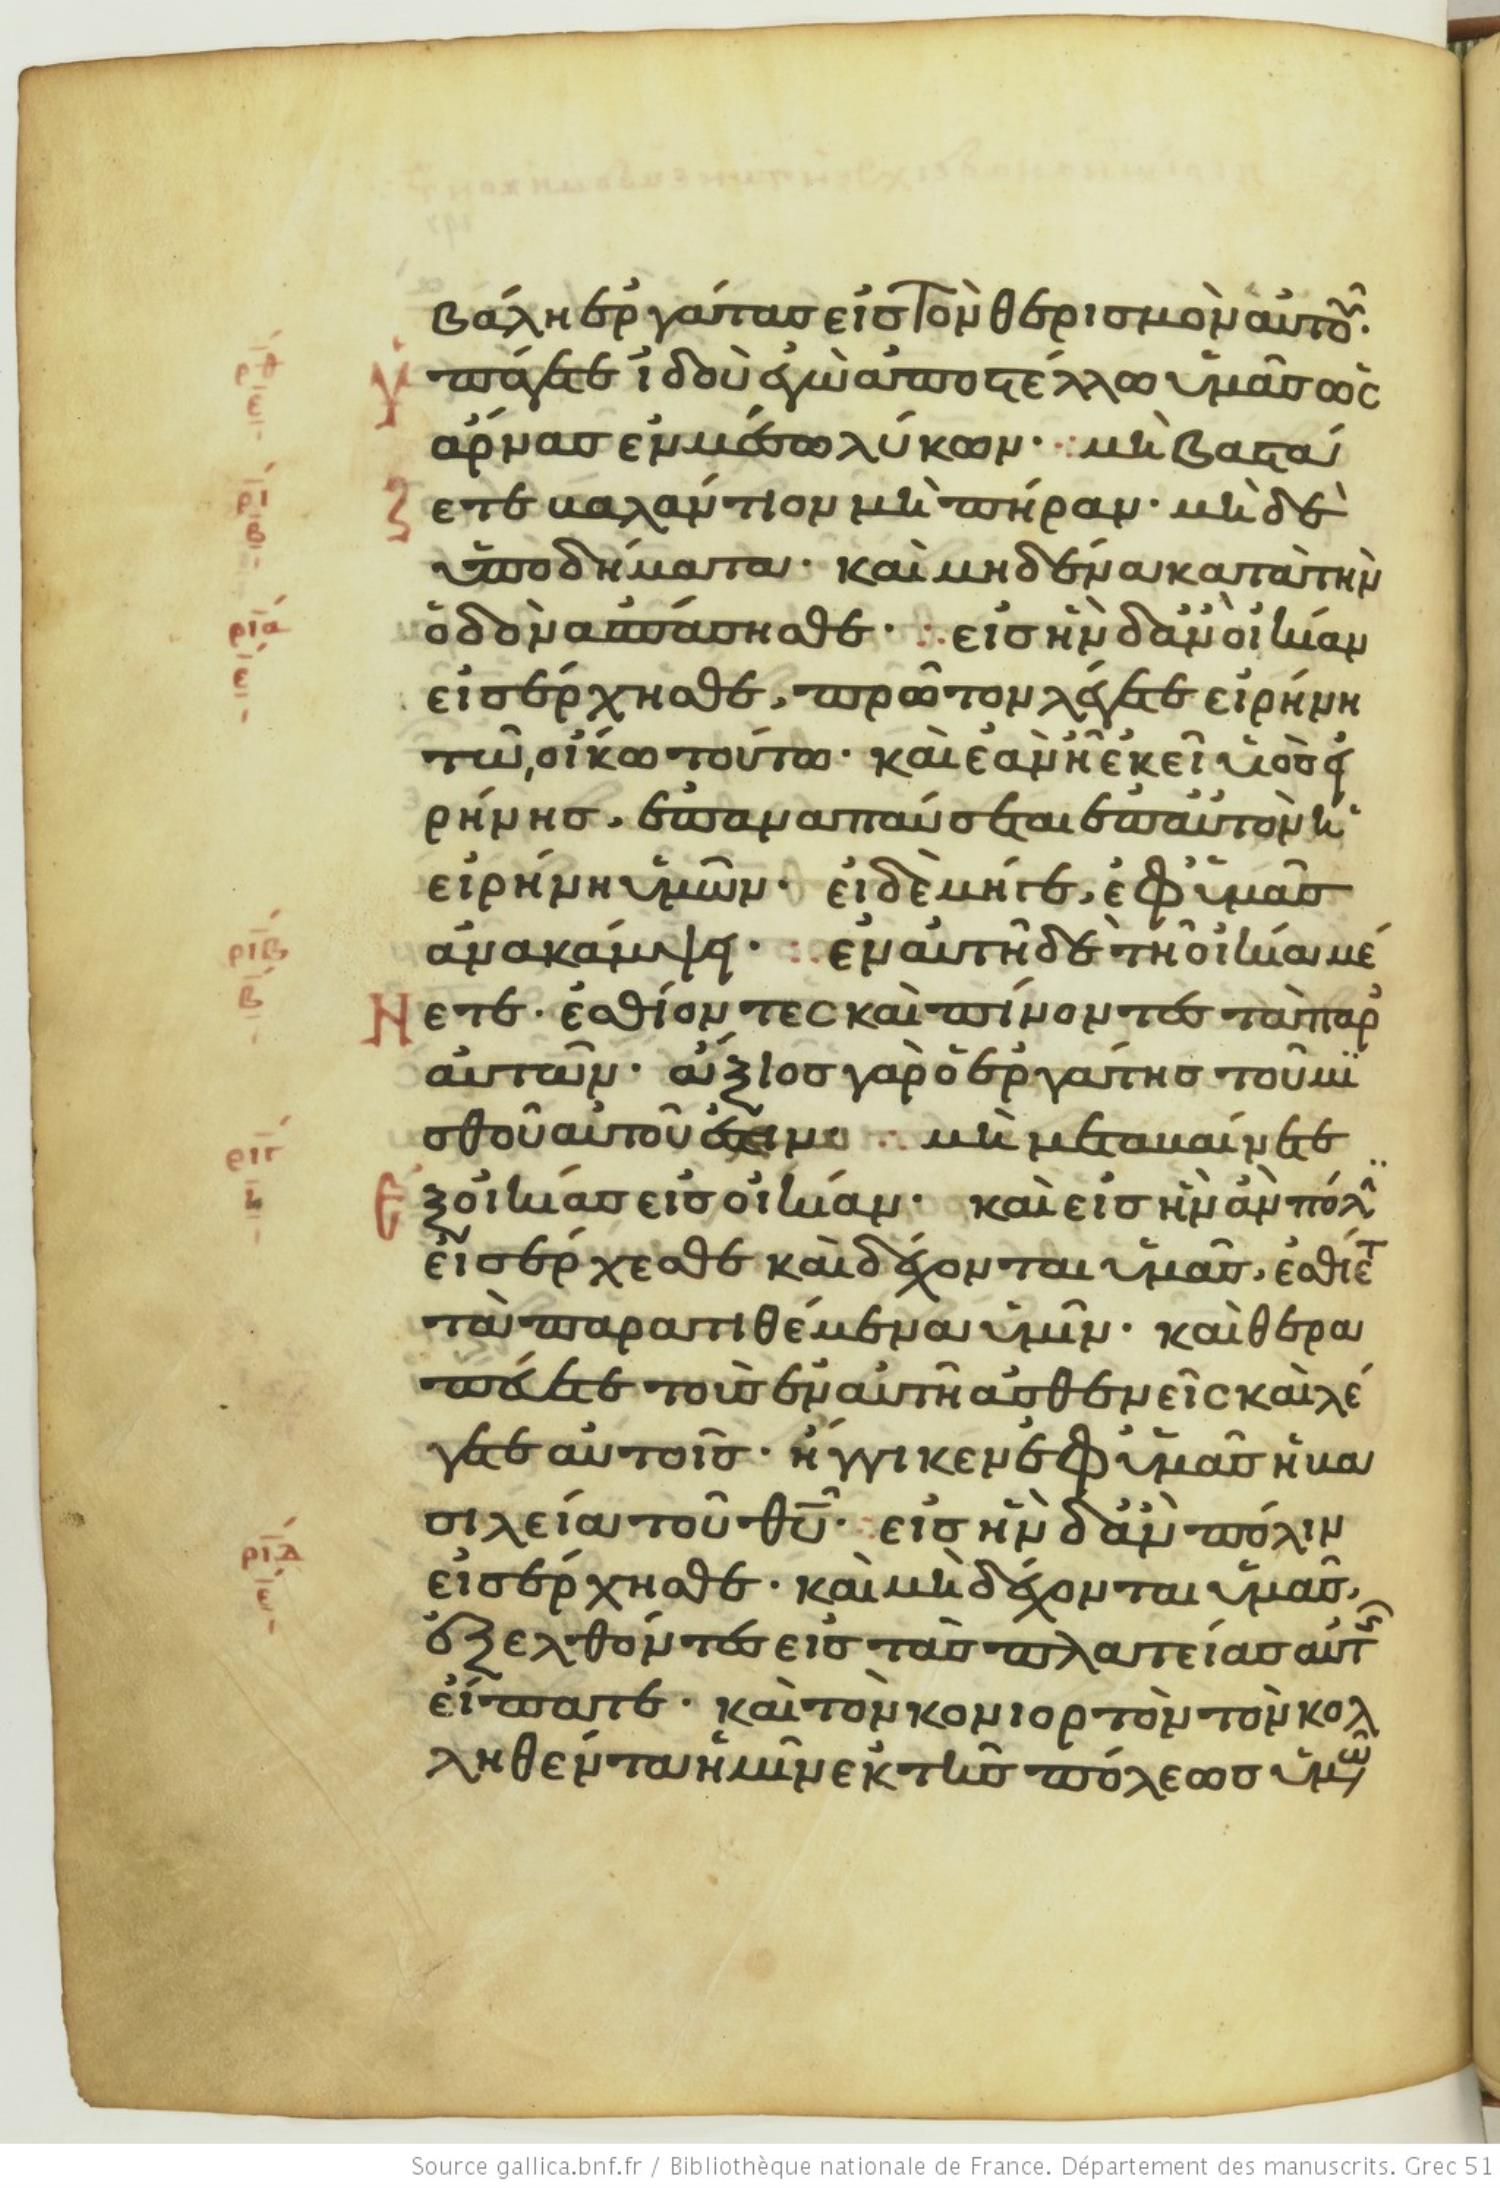 βάλη ἐργάτας εἰς τὸν θερισμὸν αὐτοῦ·
ὑπάγετε ἰδοὺ ἐγὼ ἀποστέλλω ὑμᾶς ὡς
ἄρνας ἐν μέσω λύκων· μὴ βαστά
ζετε βαλάντιον μὴ πήραν· μὴ δὲ
ὑποδήματα· καὶ μηδένα κατὰ τὴν
ὁδὸν ἀσπάσησθε· εἰς ἣν δ' ἂν οἰκίαν
εἰσέρχησθε, πρῶτον λέγετε εἰρήνη
τῶ οἴκω τούτω· καὶ ἐὰν ἦ ἐκεῖ υἱὸς εἰ
ρήνης, ἐπαναπαύσεται ἐπ' αὐτὸν ἡ
εἰρήνη ὑμῶν· εἰ δὲ μήγε, ἐφ' ὑμᾶς
ἀνακάμψει· ἐν αὐτῆ δὲ τῆ οἰκία μέ
νετε· ἐσθίοντες καὶ πίνοντες τὰ παρ'
αὐτῶν· ἄξιος γὰρ ὁ ἐργάτης τοῦ μι
σθοῦ αὐτοῦ ἐστιν· μὴ μεταβαίνετε
ἐξ οἰκίας εἰς οἰκίαν· καὶ εἰς ἣν ἂν πόλϊ
εἰσέρχεσθε καὶ δέχονται ὑμᾶς, ἐσθίετ
τὰ παρατιθέμενα ὑμῖν· καὶ θερα
πεύετε τοὺς ἐν αὐτῆ ἀσθενεῖς καὶ λέ
γετε αὐτοῖς· ἤγγικεν ἐφ' ὑμᾶς ἡ βα
σιλεία τοῦ θῦ· εἰς ἣν δ' ἂν πόλιν
εἰσέρχησθε· καὶ μὴ δέχονται ὑμᾶς,
ἐξελθόντες εἰς τὰς πλατείας αὐτῆς
εἴπατε· καὶ τὸν κονιορτὸν τὸν κολ
ληθέντα ἡμῖν ἐκ τῆς πόλεως ὑμῶν
ρθ
ε
ρι
β
ρια
ε
ριβ
β
ριγ
ριδ
ε
Source gallica.bnf.fr / Bibliothèque nationale de France. Département des manuscrits. Grec 51